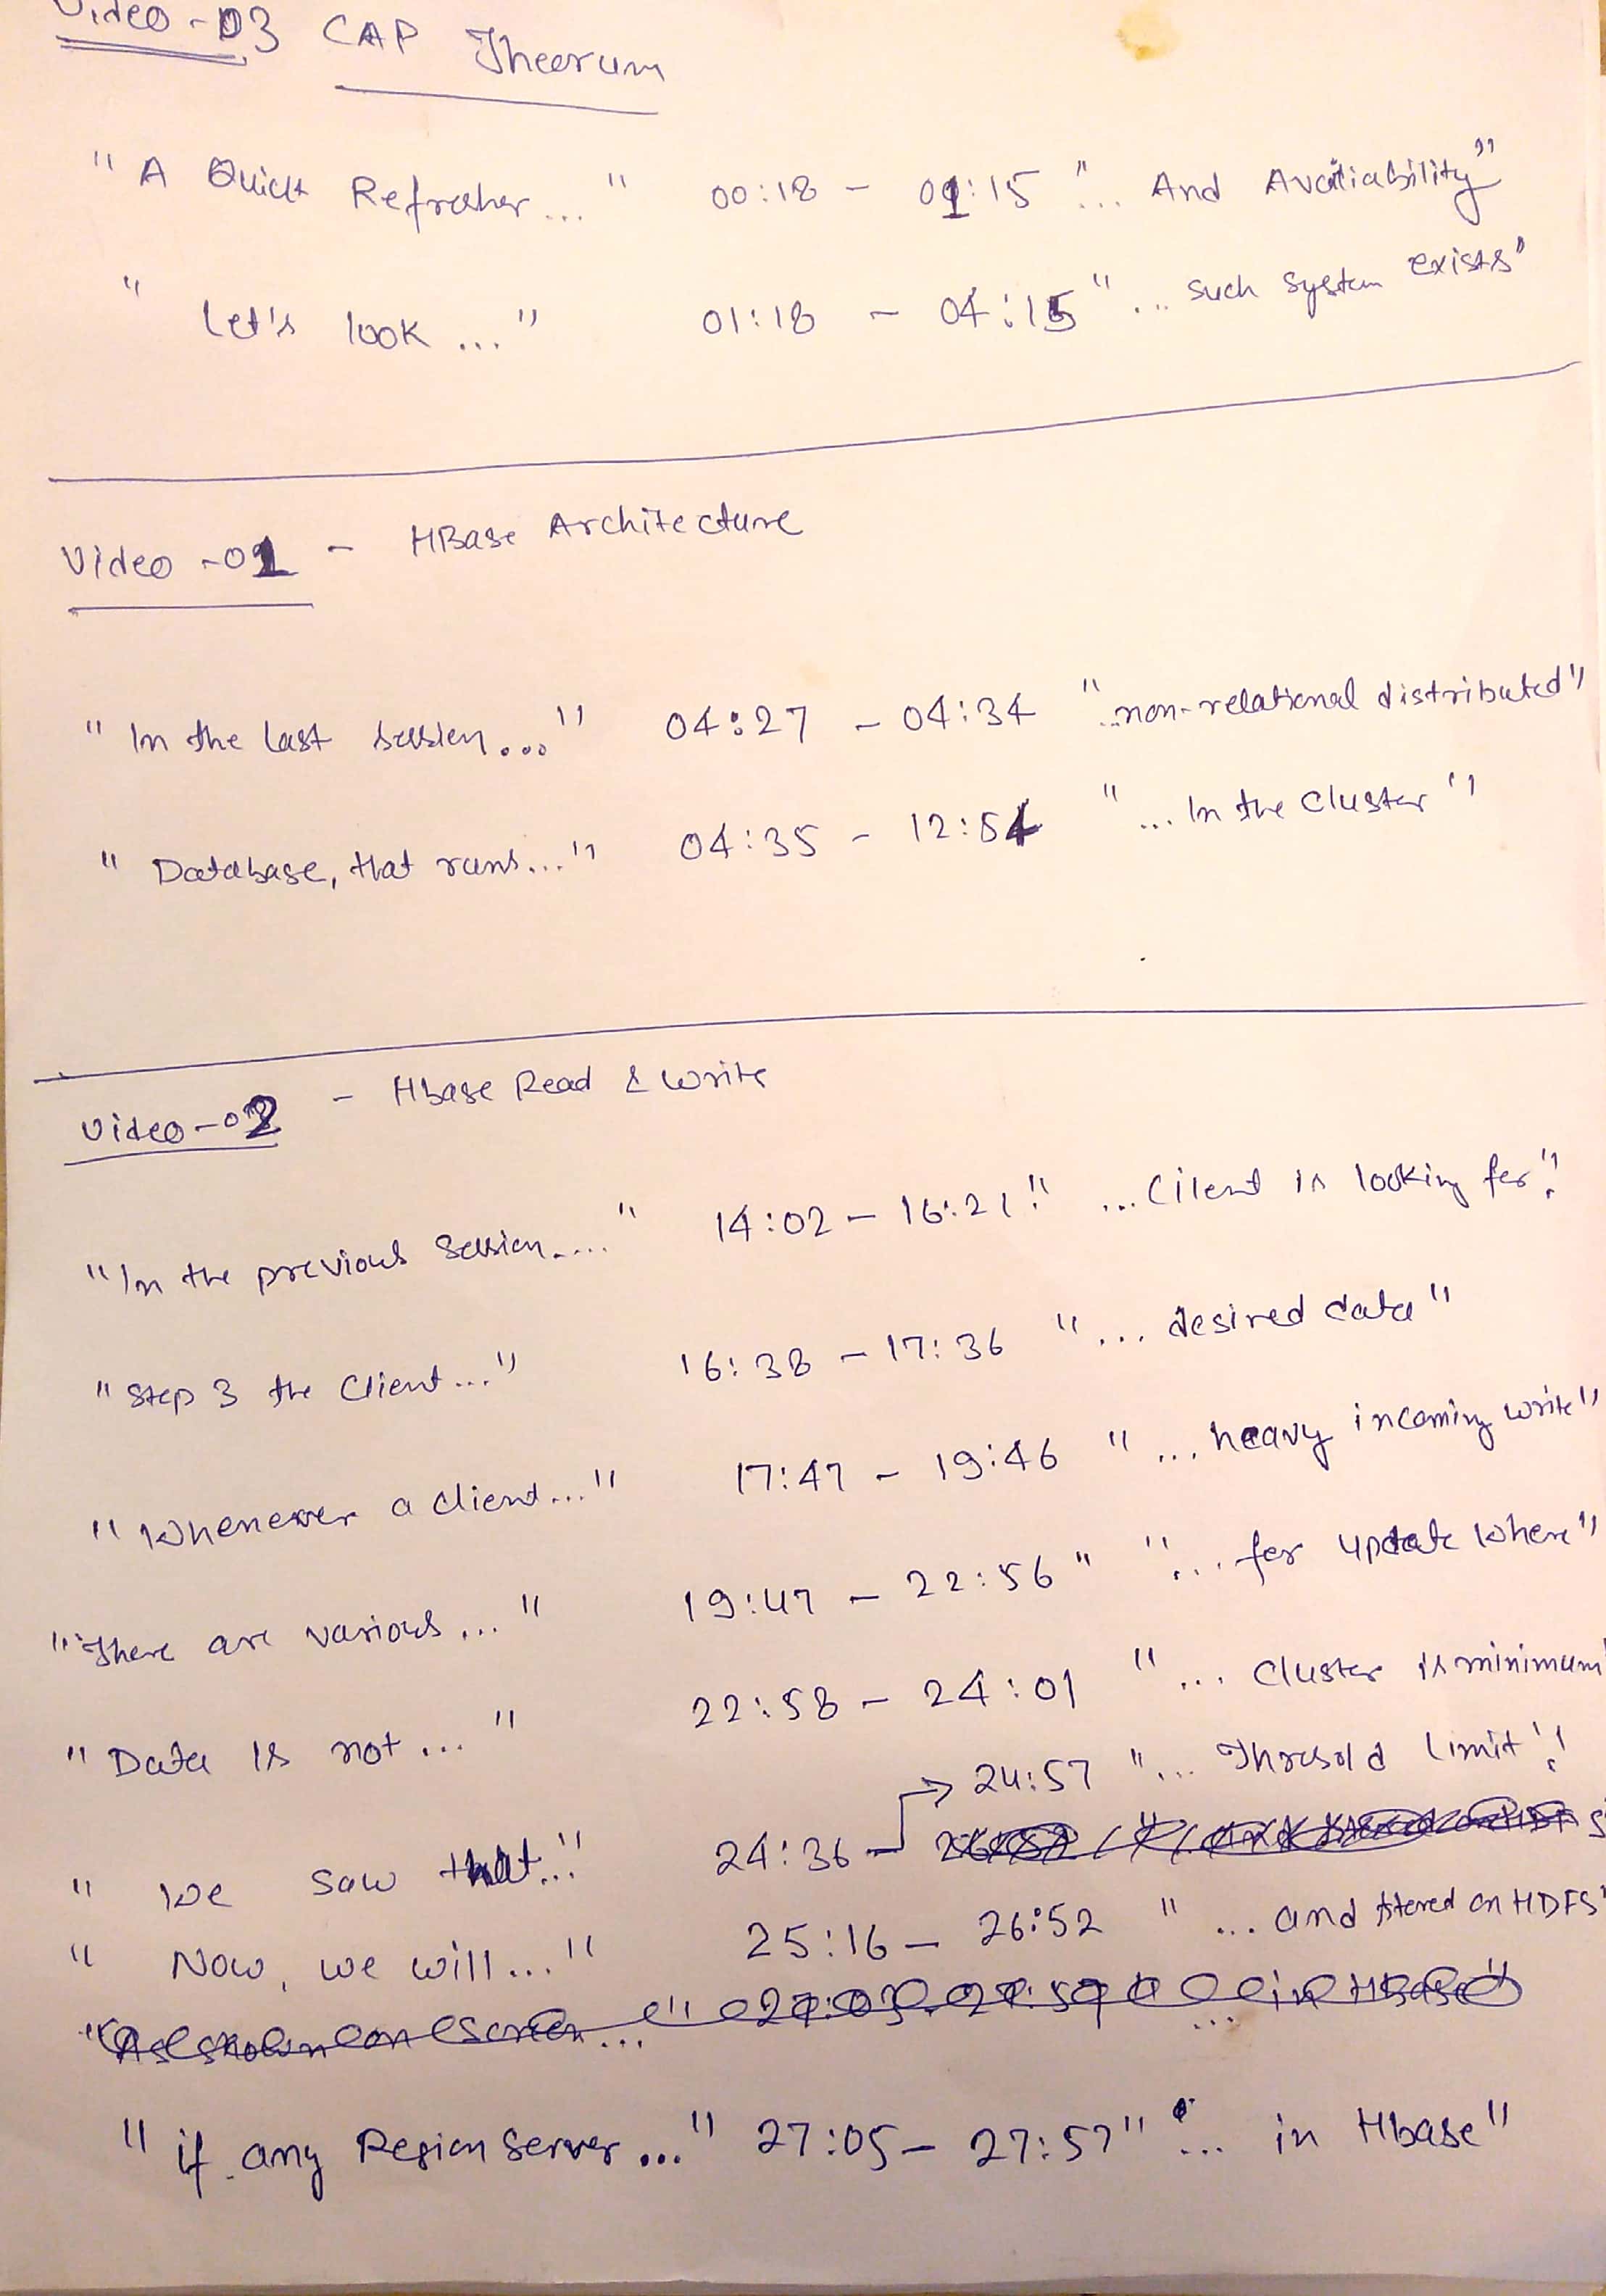 Video - 03 CAP Theorum
"A Quick Refresher..." 00:18 - 01:15 "... And Availiability"
"Let's look ..." 01:18 - 04:15 "... such system exists"
Video - 01 - HBase Architecture
"In the last session..." 04:27 - 04:34 "...non-relational distributed"
"Database, that runs..." 04:35 - 12:54 "... In the Cluster"
Video - 02 - Hbase Read & Write
"In the previous session...." 14:02 - 16:21 "... Cilent is looking for"
"Step 3 the Client..." 16:38 - 17:36 "... desired data"
"Whenever a client..." 17:47 - 19:46 "... heavy incoming write"
"There are various ..." 19:47 - 22:56 " "... for update where"
"Data is not ..." 22:58 - 24:01 "... Cluster is minimum
24:57 "... Thresold limit"
"We saw that..." 24:36 -
"Now, we will..." 25:16 - 26:52 "... and stored on HDFS"
"if any Region Server..." 27:05 - 27:57 "... in Hbase"